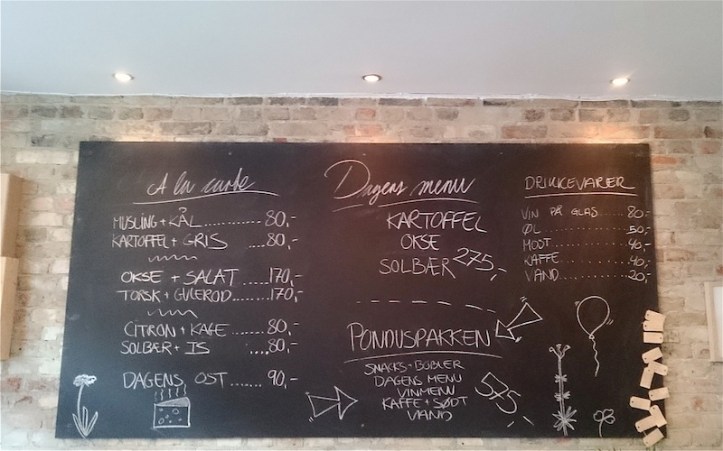 A la carte
MUSLING + KÅL.............80,-
KARTOFFEL + GRIS ....80,-
OKSE + SALAT.....170,-
TORSK + GULEROD....170,-
CITRON + KAGE.......80,-
SOLBÆR + IS ....80,-
DAGENS OST.......90,-
Dagens menu
KARTOFFEL
OKSE
SOLBÆR 275,-
PONDUSPAKKEN
SNACKS + BOBLER
DAGENS MENU
VINMENU
KAFFE + SØDT
VAND
575,-
DRIKKEVARER
VIN PÅ GLAS......80,-
ØL..................50,-
MOST.............40,-
KAFFE.............40,-
VAND..............20,-